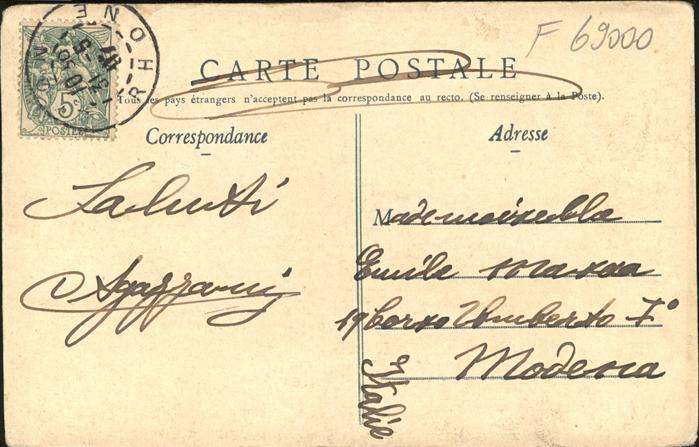 F 69000
RHONE
5c
POSTES
CARTE POSTALE
Tous les pays étrangers n'acceptent pas la correspondance au recto. (Se renseigner à la Poste).
Correspondance
Adresse
Saluti
Mademoiselle
Emile
19 Corso Umberto Iº
Modena
Italie